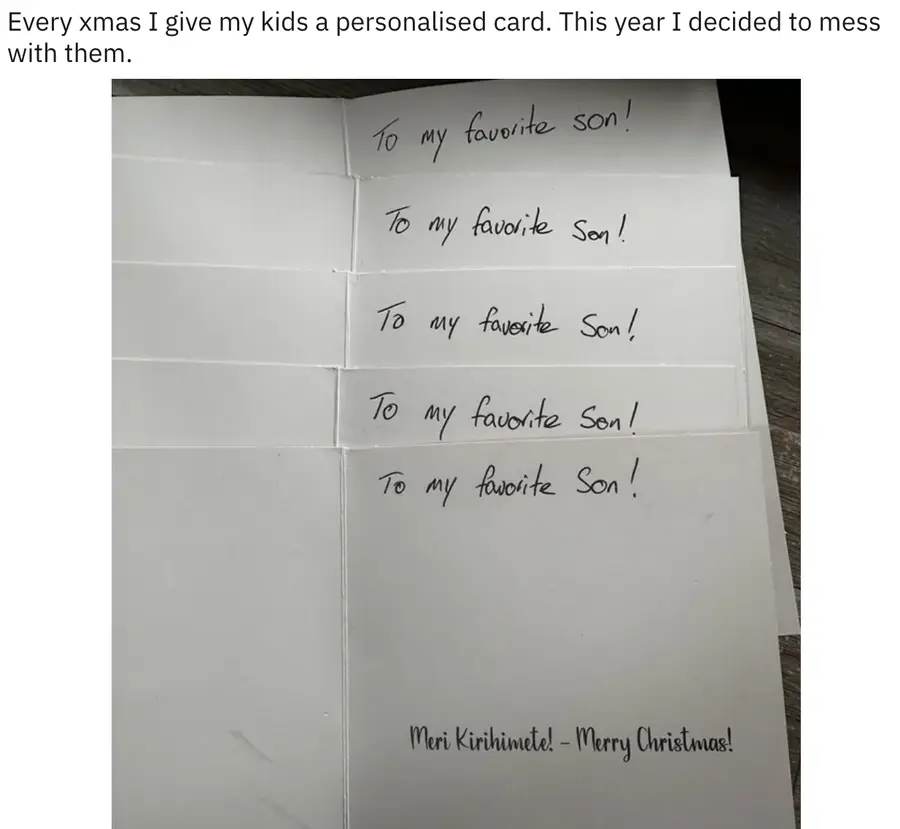 Every xmas I give my kids a personalised card. This year I decided to mess
with them.
To my favorite son!
To my favorite Son!
To my favorite Son!
To my favorite Son!
To my favorite Son!
Meri Kirihimete! - Merry Christmas!